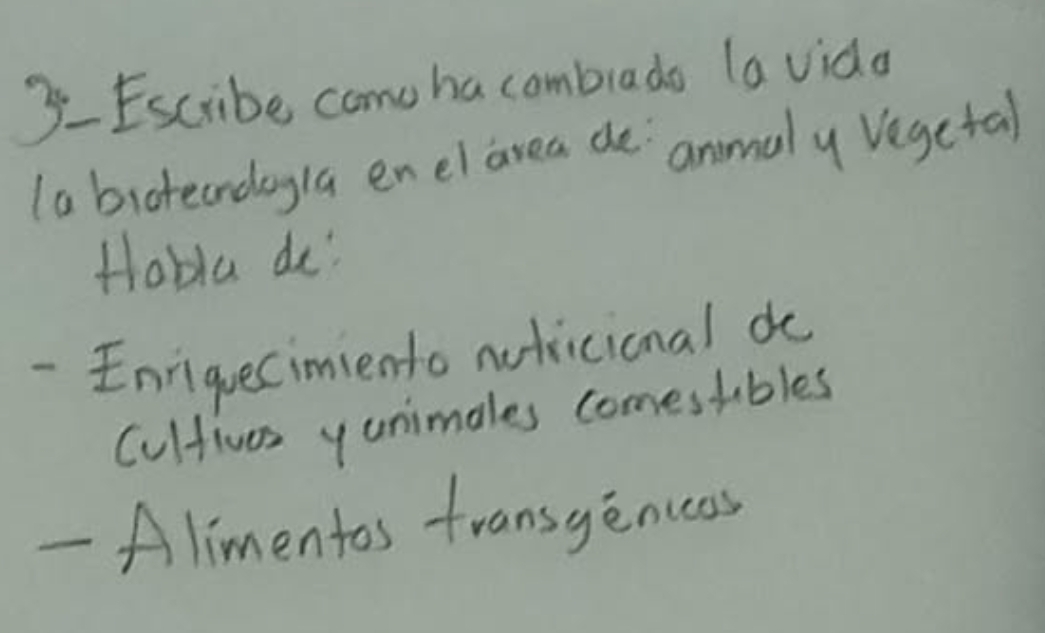 3- Escribe como ha cambiado la vida
la biotecnología en el área de: animal y vegetal
Habla de:
- Enriquecimiento nutricional de
cultivos y animales comestibles
- Alimentos transgénicos